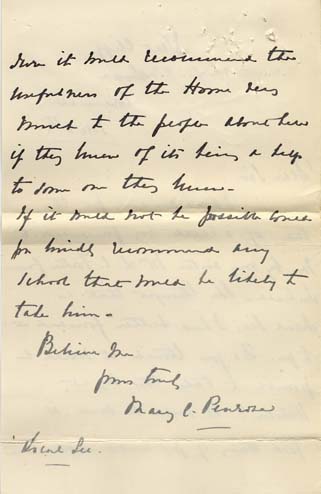 sure it would recommend the
usefulness of the Home very
much to the people about here
if they knew of its being a help
to some one they knew -
If it would not be possible could
you kindly recommend any
school that would be likely to
take him -
Believe me
yours truly
Mary C. Penrose
Sec.